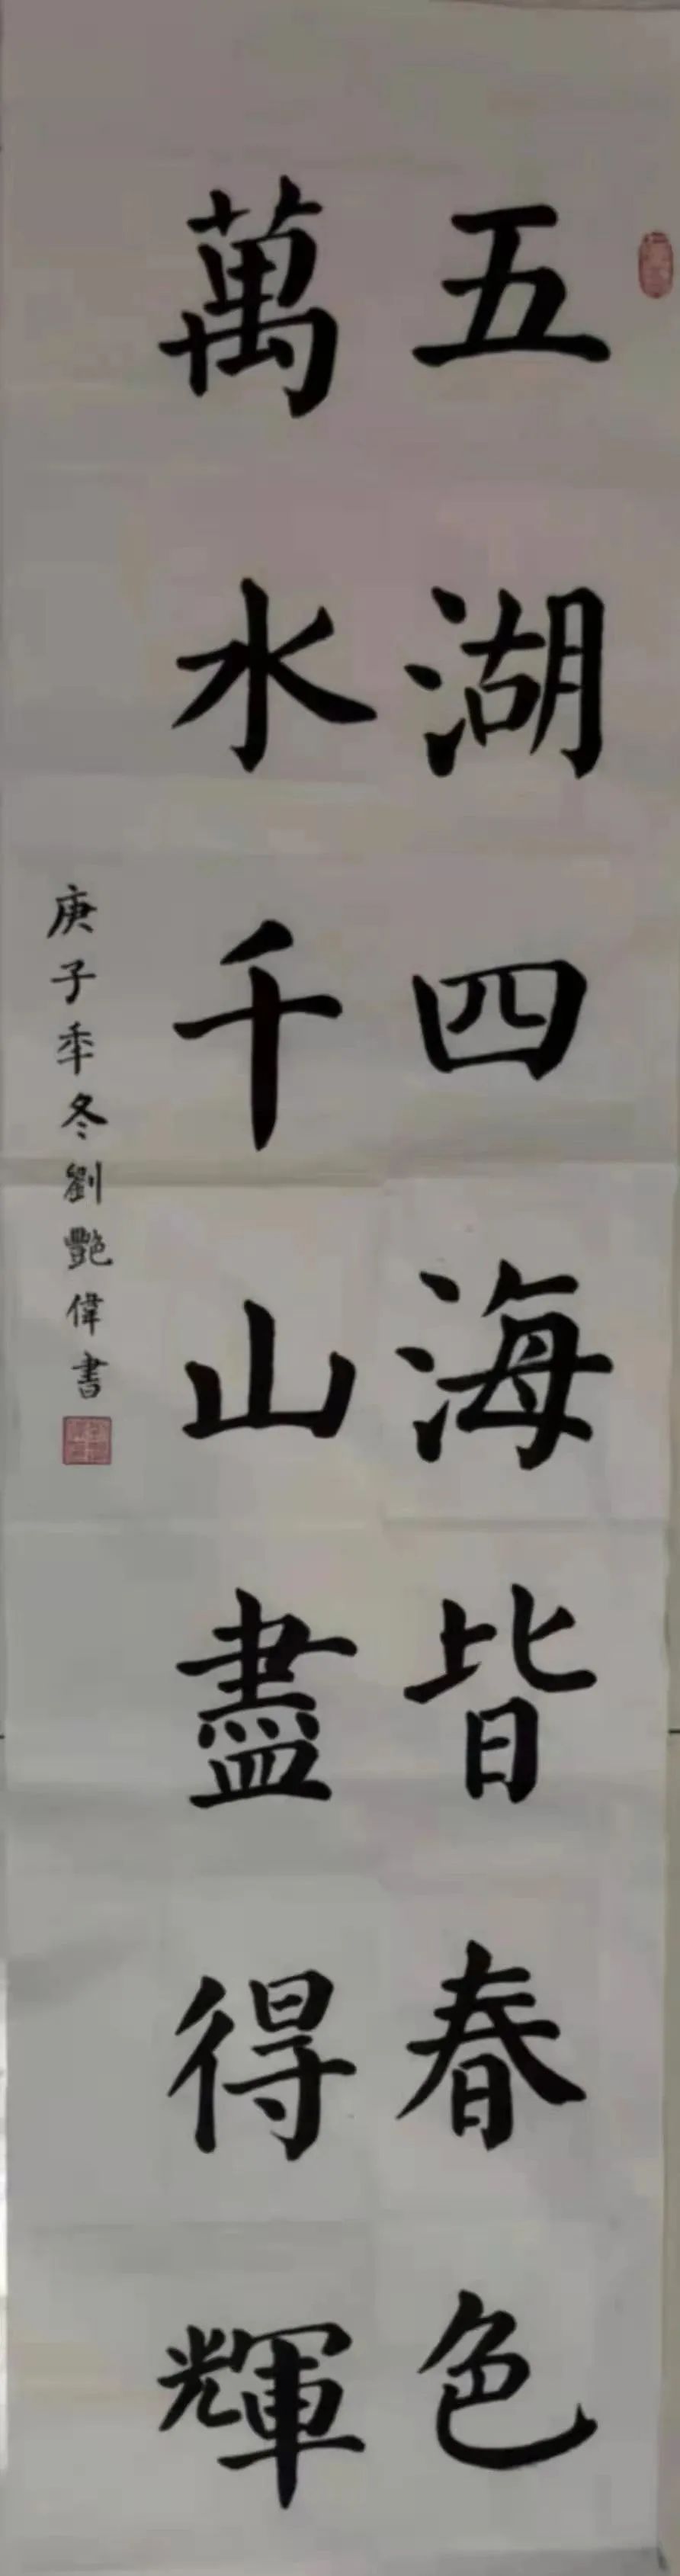 五湖四海皆春色
萬水千山盡得輝
庚子年冬劉艷偉書